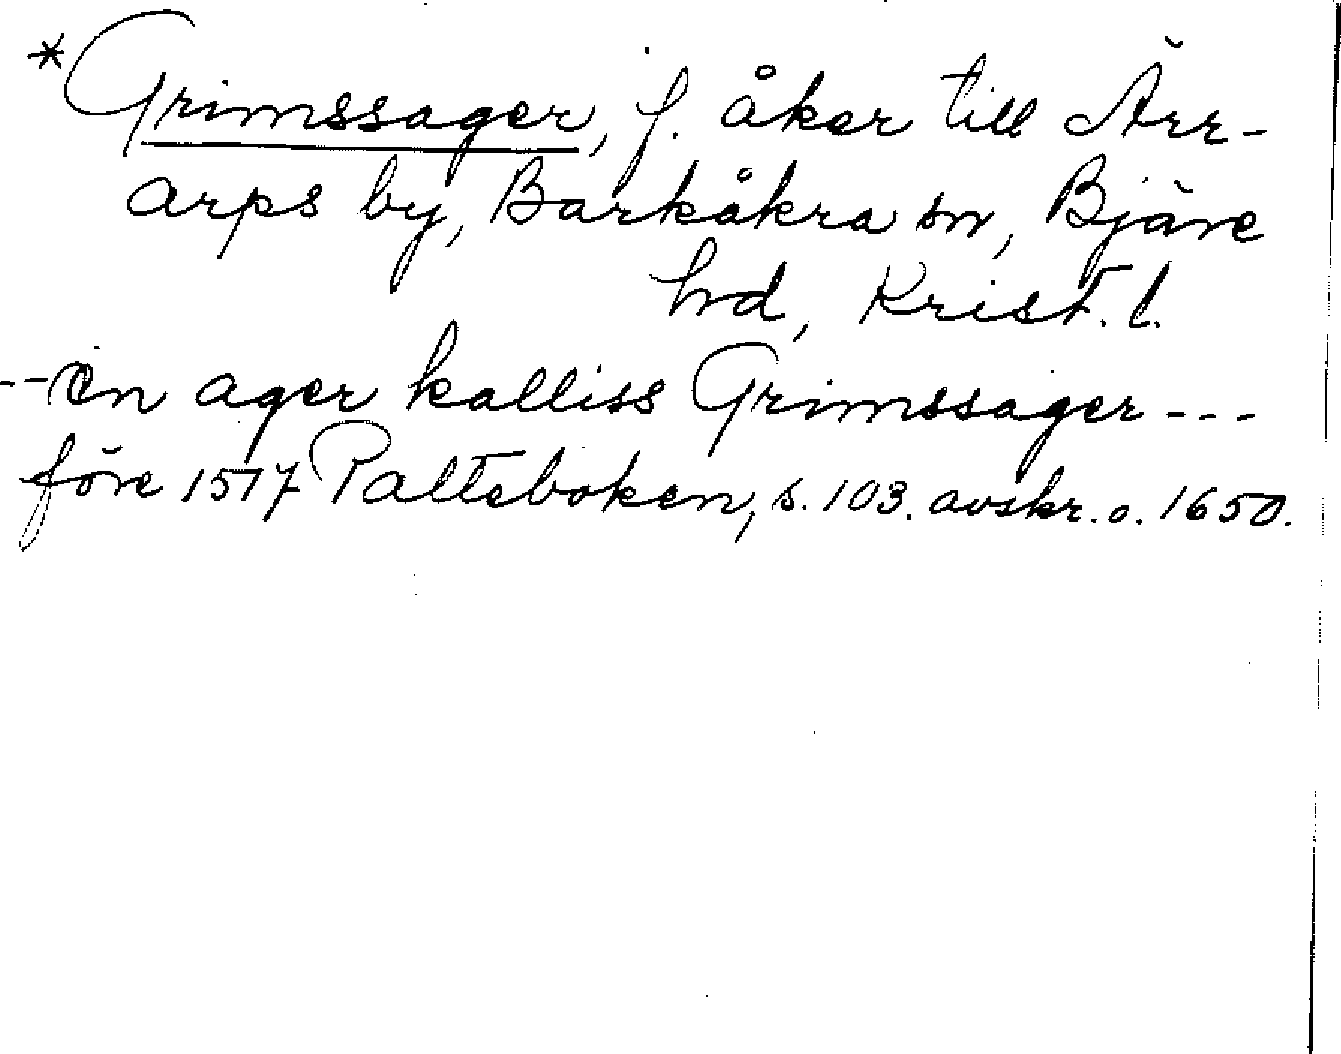 *Grimssager, f. åker till Ärr-
arps by, Barkåkra sn, Bjäre
hrd, Krist. l.
--en ager kalliss Grimssager---
före 1517 Palteboken, s. 103. avskr. o. 1650.